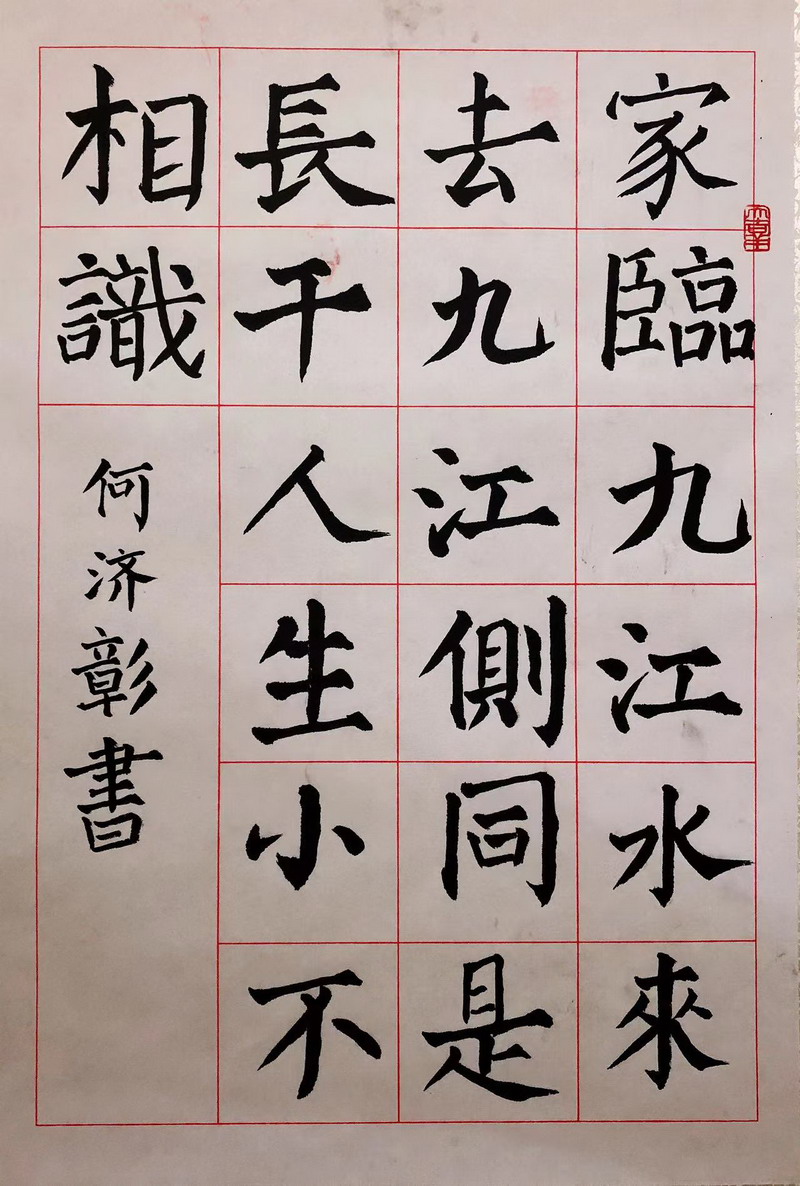 家臨九江水來
去九江側同是
長干人生小不
相識
何济彰書